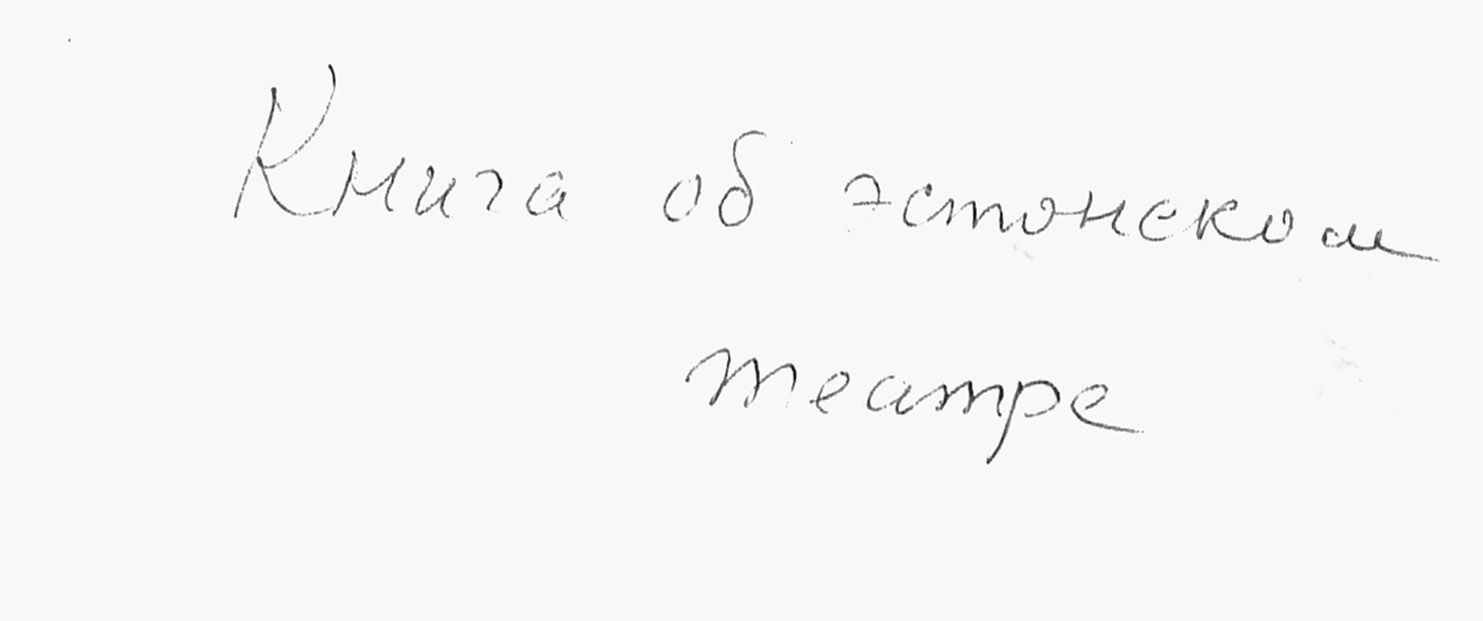 Книга об эстонском
театре